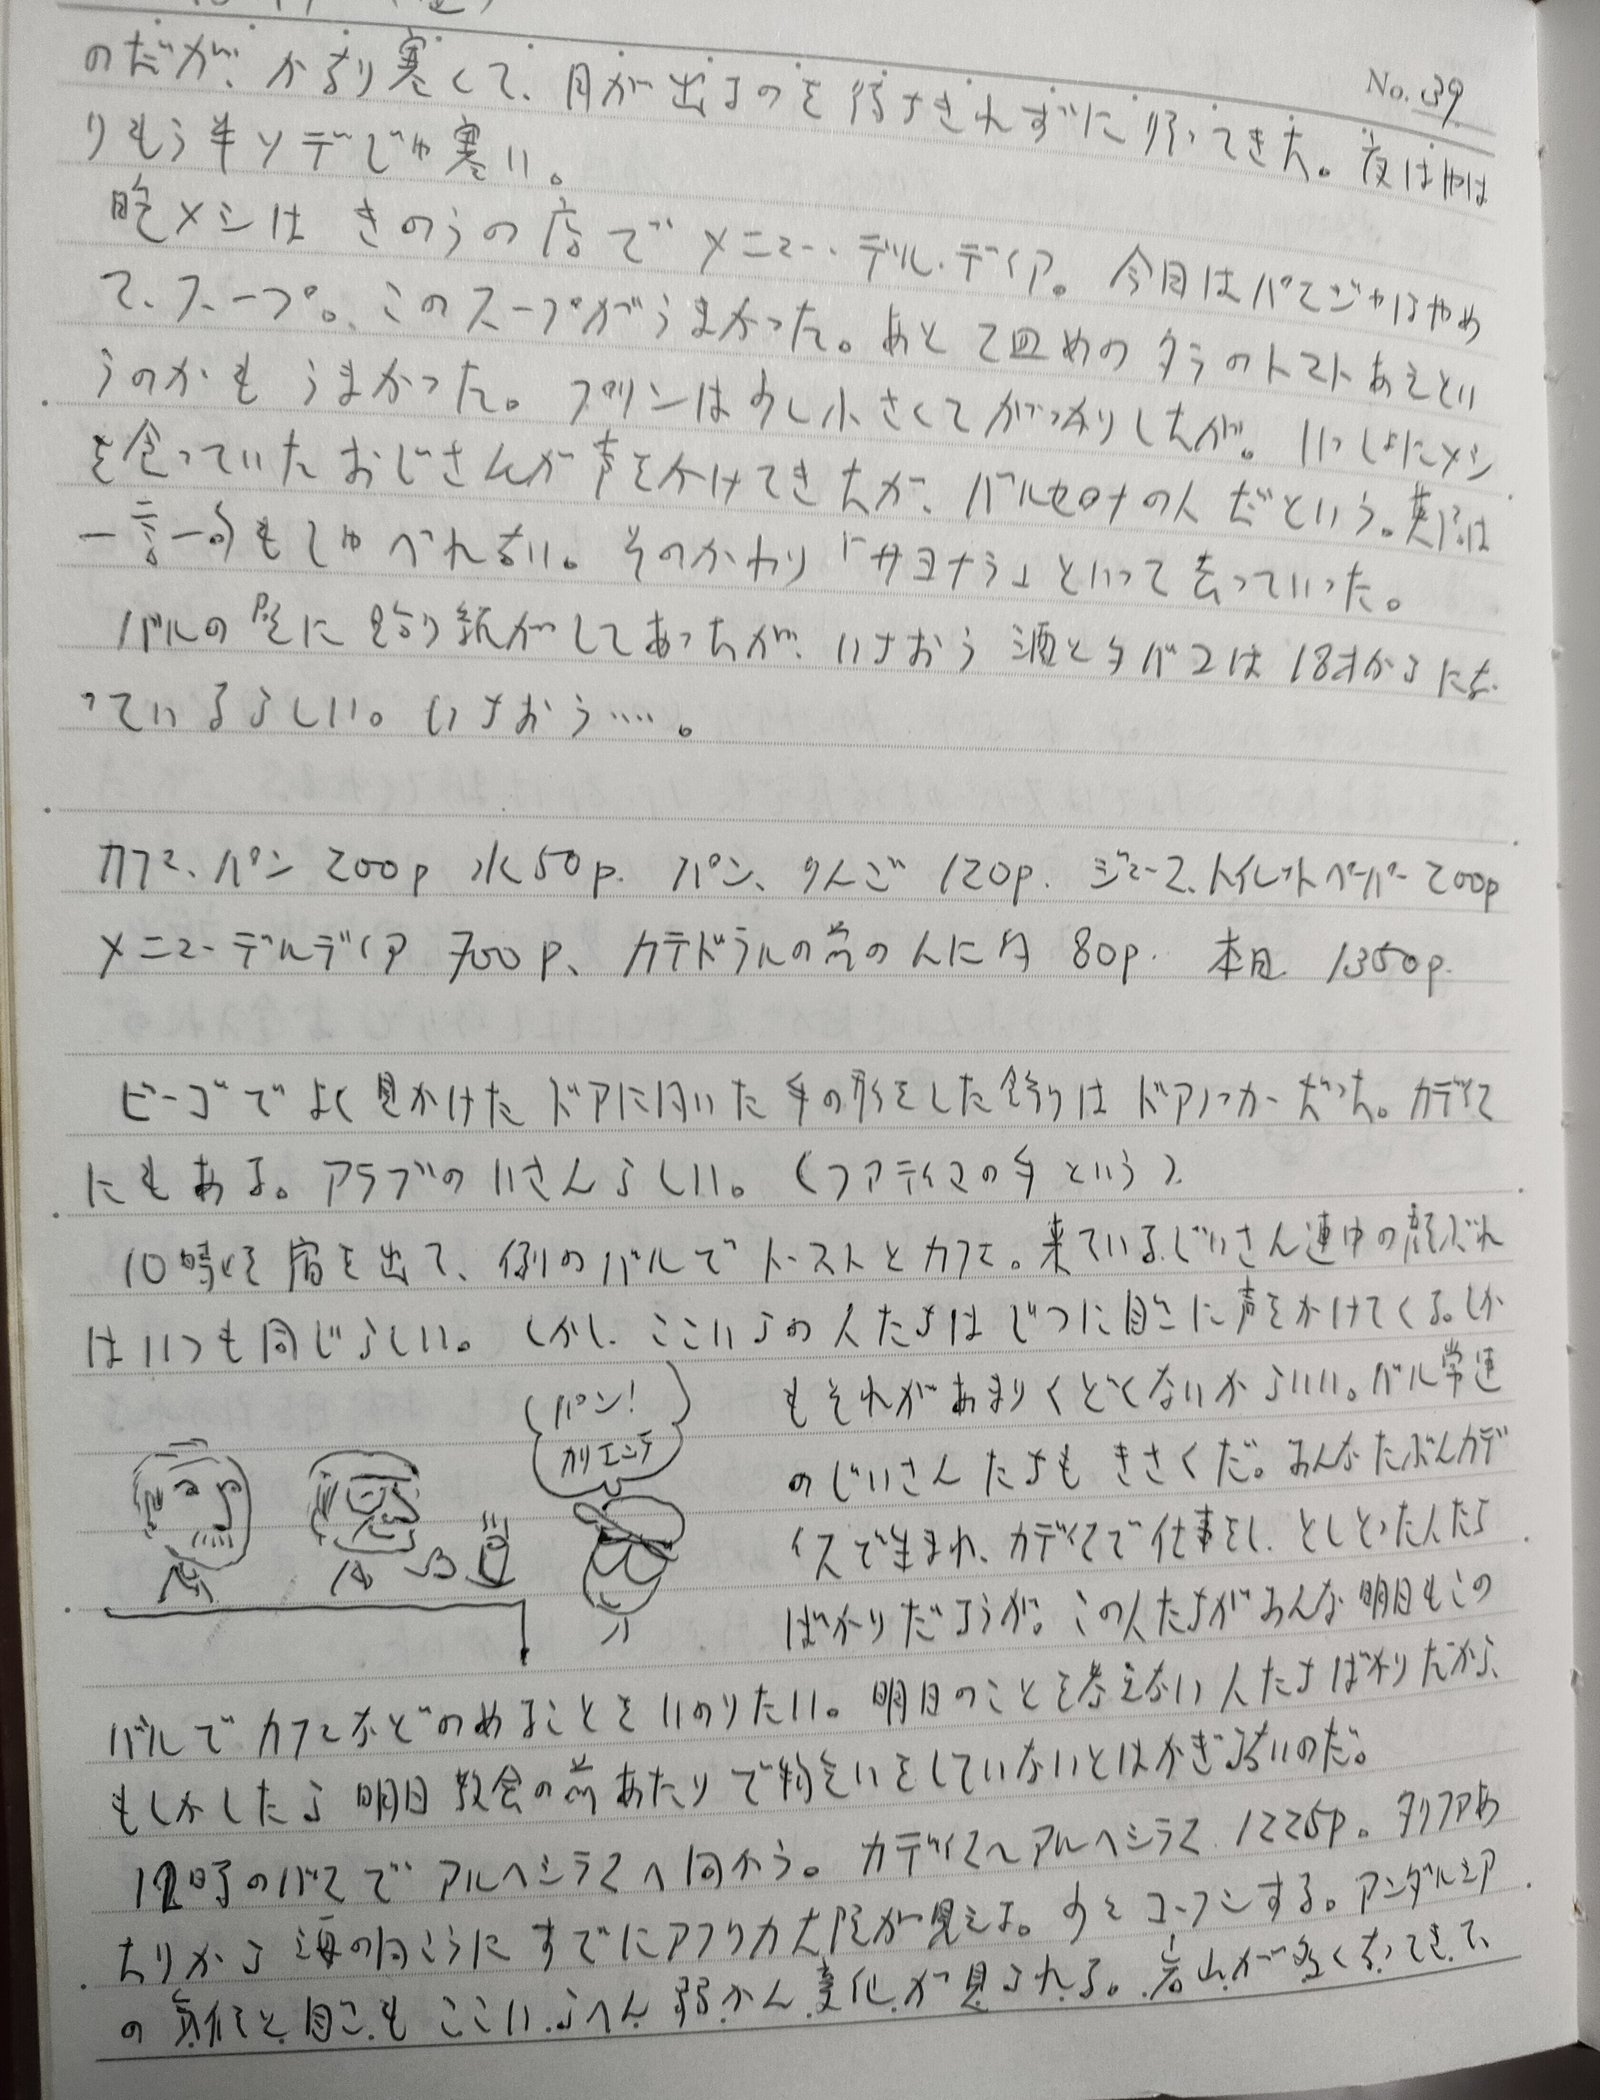 No. 39
のだが、かなり寒くて、月が出るのを待ちきれずに帰ってきた。夜はやは
りもう半ソデじゃ寒い。
晩メシはきのうの店でメニュー・デル・ディア。今日はパエジャはやめ
て、スープ。このスープがうまかった。あと て皿めのタラのトマトあえとい
うのかもうまかった。プリンは少し小さくてがっかりしたが。いっしょにメシ
を食っていたおじさんが声をかけてきたが、バルセロナの人だという。英語は
一言一句もしゃべれない。そのかわり「サヨナラ」といって去っていった。
バルの壁に貼り紙がしてあったが、いちおう酒とタバコは18才からにな
っているらしい。いちおう‥‥。
カフェ、パン 200p 水50p. パン、りんご 120p. ジュース、トイレットペーパー 200p
メニューデルディア 700p、カテドラルの前の人に 80p. 本日 1350p.
ビーゴでよく見かけたドアに付いた手の形をした飾りはドアノッカーだった。カディス
にもある。アラブのいさんらしい。(ファティマの手という)
10時に宿を出て、例のバルでトーストとカフェ。来ているじいさん連中の顔ぶれ
はいつも同じらしい。しかし、ここいらの人たちはじつに自然に声をかけてくる。しか
もそれがあまりくどくないからいい。バル常連
のじいさんたちもきさくだ。みんなたぶんカデ
ィスで生まれ、カディスで仕事をし、としとった人たち
ばかりだろうが。この人たちがみんな明日もこの
パン!
カリエンテ
バルでカフェなどのめることをいのりたい。明日のことを考えない人たちばかりだから、
もしかしたら明日教会の前あたりで物乞いをしていないとはかぎらないのだ。
12時のバスでアルヘシラスへ向かう。カディス〜アルヘシラス 1225p。タリファあ
たりから海の向こうにすでにアフリカ大陸が見える。少々コーフンする。アンダルシア
の気候と もここいらへん弱かん変化が見られる。岩山が多くなってきて、